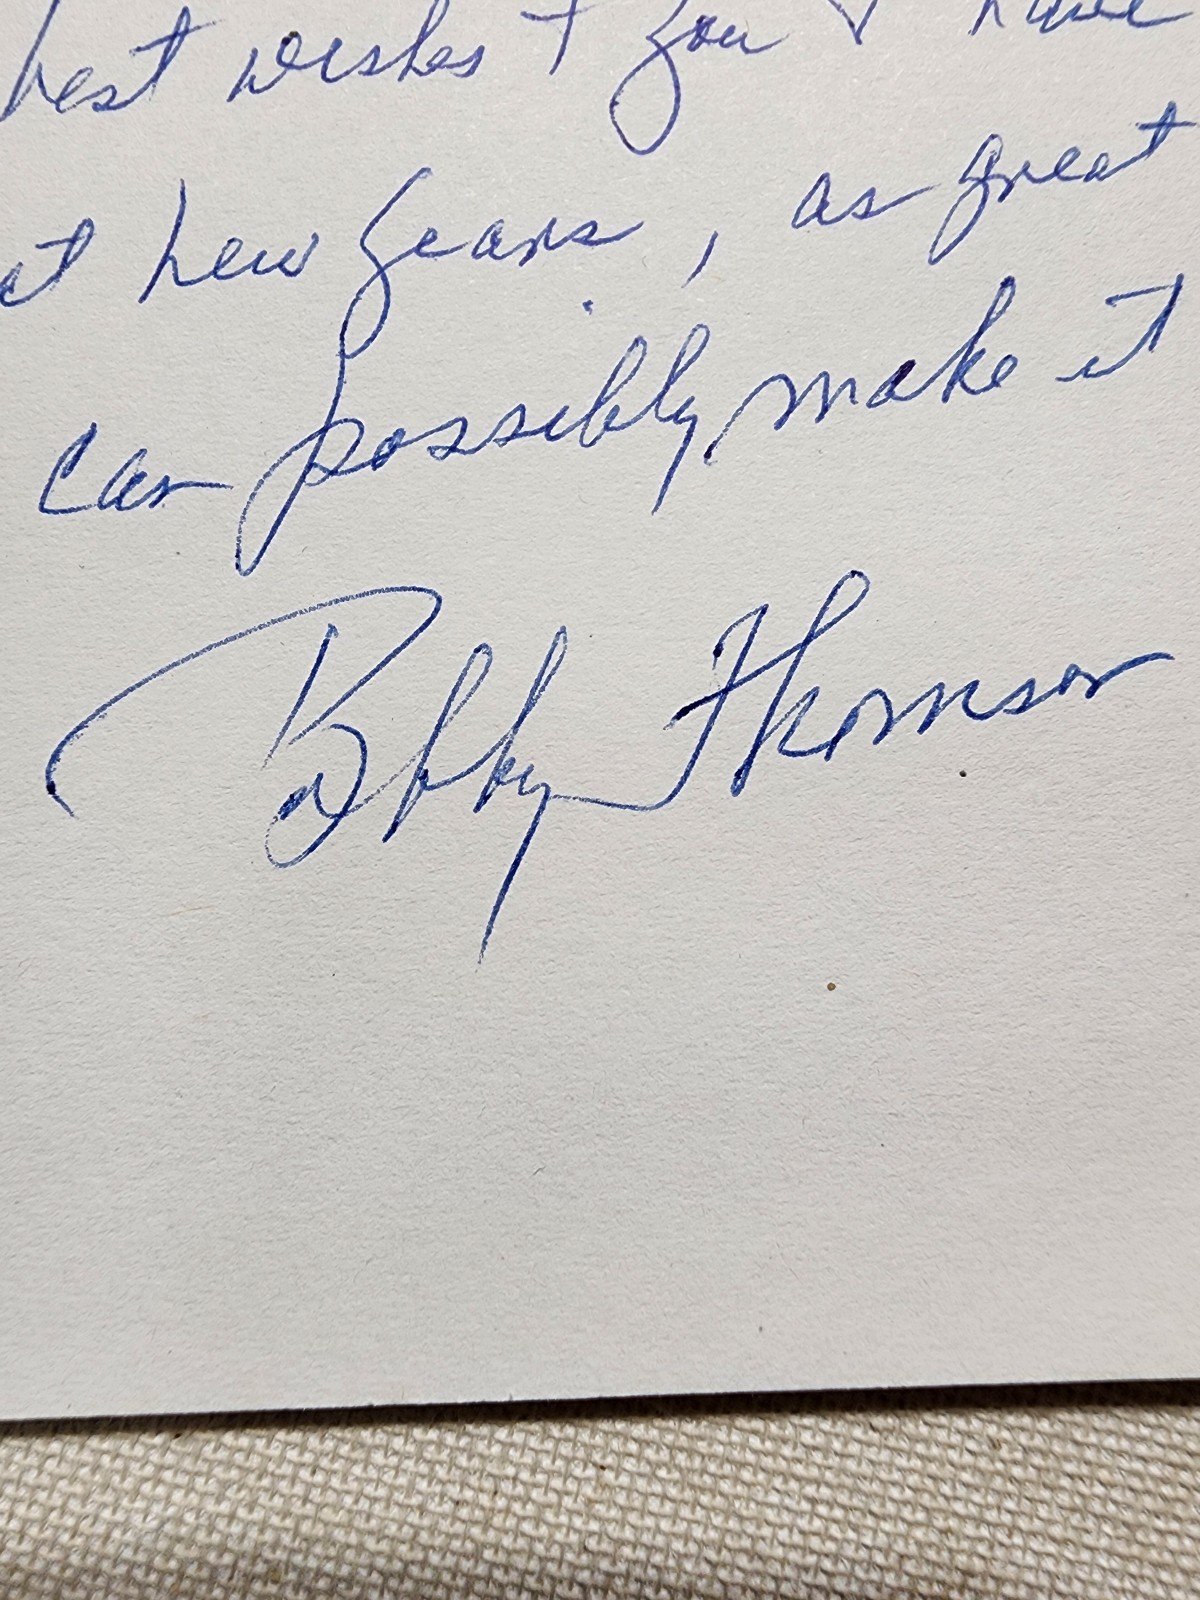 best wishes + you + have
at new years, as great
can possibly make it
Bobby Thomson